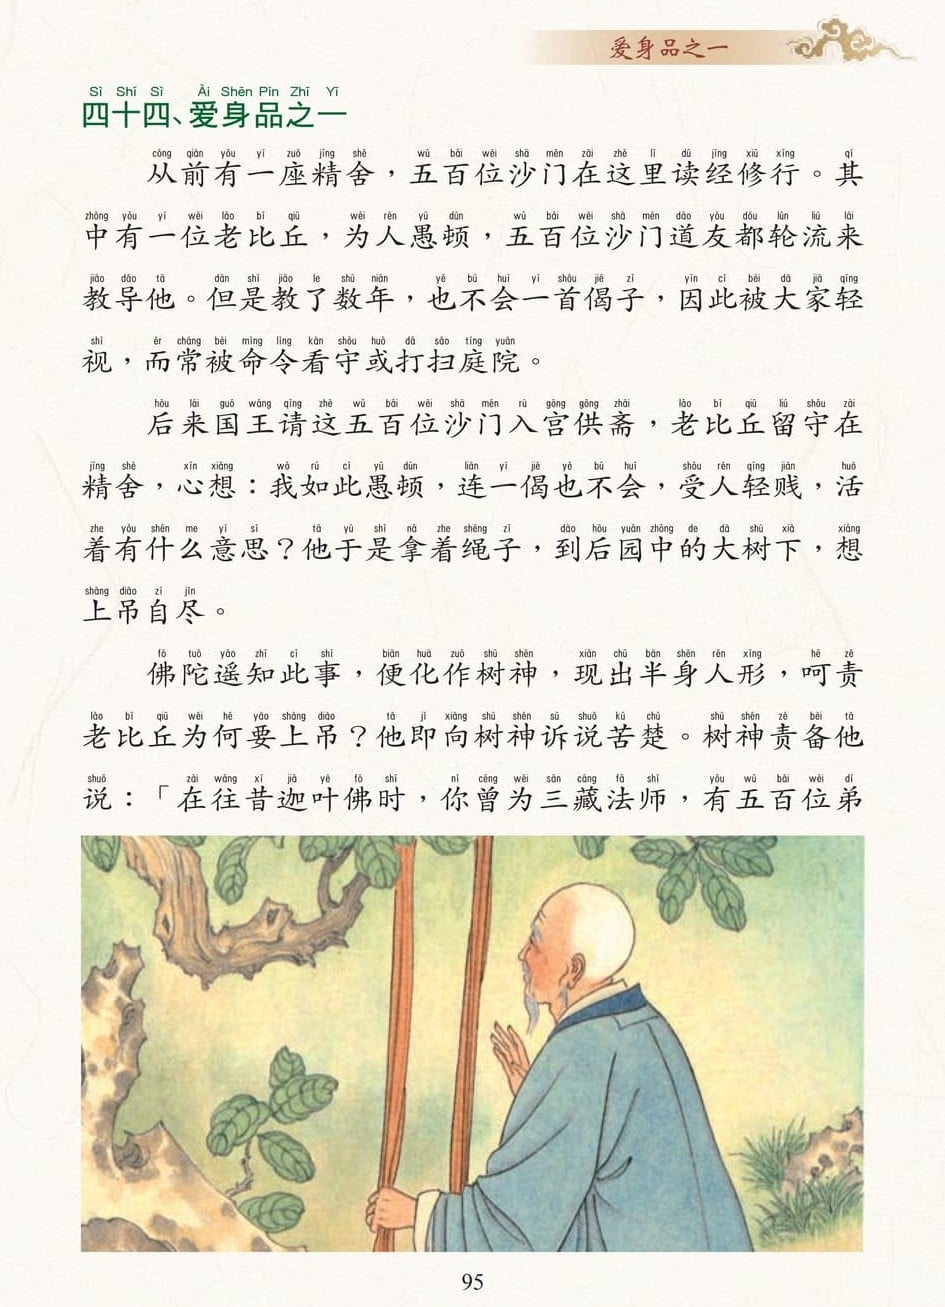 爱身品之一
Sì Shí Sì Ài Shēn Pǐn Zhī Yī
四十四、爱身品之一
cóng qián yǒu yí zuò jīng shè wǔ bǎi wèi shā mén zài zhè lǐ dú jīng xiū xíng qí
从前有一座精舍，五百位沙门在这里读经修行。其
zhōng yǒu yí wèi lǎo bǐ qiū wéi rén yú dùn wǔ bǎi wèi shā mén dào yǒu dōu lún liú lái
中有一位老比丘，为人愚顿，五百位沙门道友都轮流来
jiào dǎo tā dàn shì jiāo le shù nián yě bú huì yì shǒu jié zi yīn cǐ bèi dà jiā qīng
教导他。但是教了数年，也不会一首偈子，因此被大家轻
shì ér cháng bèi mìng lìng kān shǒu huò dǎ sǎo tíng yuàn
视，而常被命令看守或打扫庭院。
hòu lái guó wáng qǐng zhè wǔ bǎi wèi shā mén rù gōng gòng zhāi lǎo bǐ qiū liú shǒu zài
后来国王请这五百位沙门入宫供斋，老比丘留守在
jīng shè xīn xiǎng wǒ rú cǐ yú dùn lián yí jié yě bú huì shòu rén qīng jiàn huó
精舍，心想：我如此愚顿，连一偈也不会，受人轻贱，活
zhe yǒu shén me yì si tā yú shì ná zhe shéng zi dào hòu yuán zhōng de dà shù xià xiǎng
着有什么意思？他于是拿着绳子，到后园中的大树下，想
shàng diào zì jìn
上吊自尽。
fó tuó yáo zhī cǐ shì biàn huà zuò shù shén xiàn chū bàn shēn rén xíng hē zé
佛陀遥知此事，便化作树神，现出半身人形，呵责
lǎo bǐ qiū wèi hé yào shàng diào tā jí xiàng shù shén sù shuō kǔ chǔ shù shén zé bèi tā
老比丘为何要上吊？他即向树神诉说苦楚。树神责备他
shuō zài wǎng xī jiā yè fó shí nǐ céng wéi sān cáng fǎ shī yǒu wǔ bǎi wèi dì
说：「在往昔迦叶佛时，你曾为三藏法师，有五百位弟
95